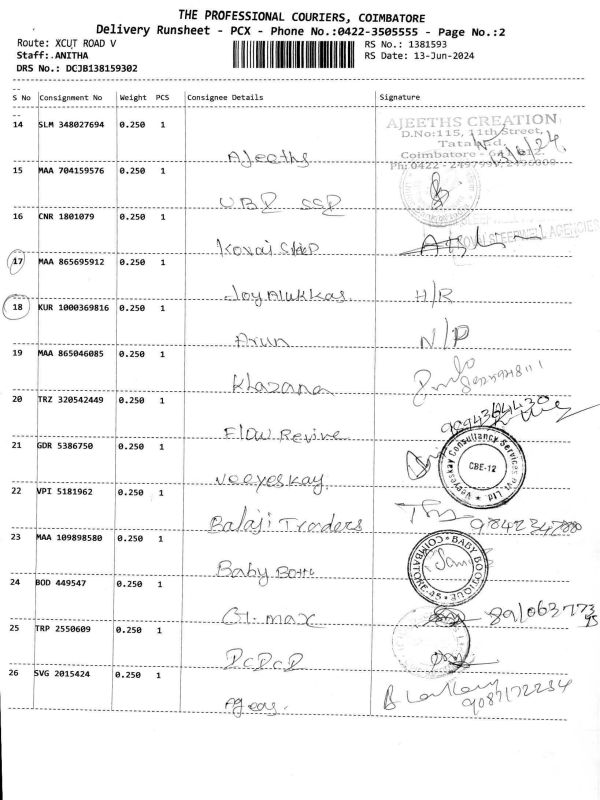 THE PROFESSIONAL COURIERS, COIMBATORE
Delivery Runsheet - PCX - Phone No.:0422-3505555 - Page No.:2
Route: XCUT ROAD V RS No.: 1381593
Staff: ANITHA RS Date: 13-Jun-2024
DRS No.: DCJB138159302
S No Consignment No Weight PCS Consignee Details Signature
14 SLM 348027694 0.250 1 Ajeeths
AJEETHS CREATION
D.No:115, 11th Street,
Tatabad,
Coimbatore - 641 012.
13/6/24
15 MAA 704159576 0.250 1
16 CNR 1801079 0.250 1 Kovai Sleep
17 MAA 865695912 0.250 1 Joy Alukkas H/R
18 KUR 1000369816 0.250 1 Arun N/P
19 MAA 865046085 0.250 1 Khazana
20 TRZ 320542449 0.250 1 Flow Revive
21 GDR 5386750 0.250 1 Veeyeskay
Veeyeskay Consultancy Services Pvt Ltd
CBE-12
22 VPI 5181962 0.250 1 Balaji Traders
23 MAA 109898580 0.250 1 Baby Booti
BABY BOOTIQUE
COIMBATORE-45
24 BOD 449547 0.250 1 Gt. max
25 TRP 2550609 0.250 1 DCDCD
26 SVG 2015424 0.250 1
9087172234